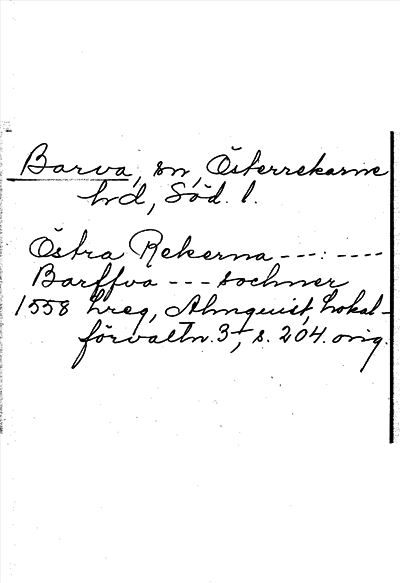 Barva, sn, Österrekarne
hd, Söd. l.
Östra Rekerna ---:----
Barffva --- sochner
1558 hreg, Almquist, Lokal-
förvaltn. 3, s. 204. orig.